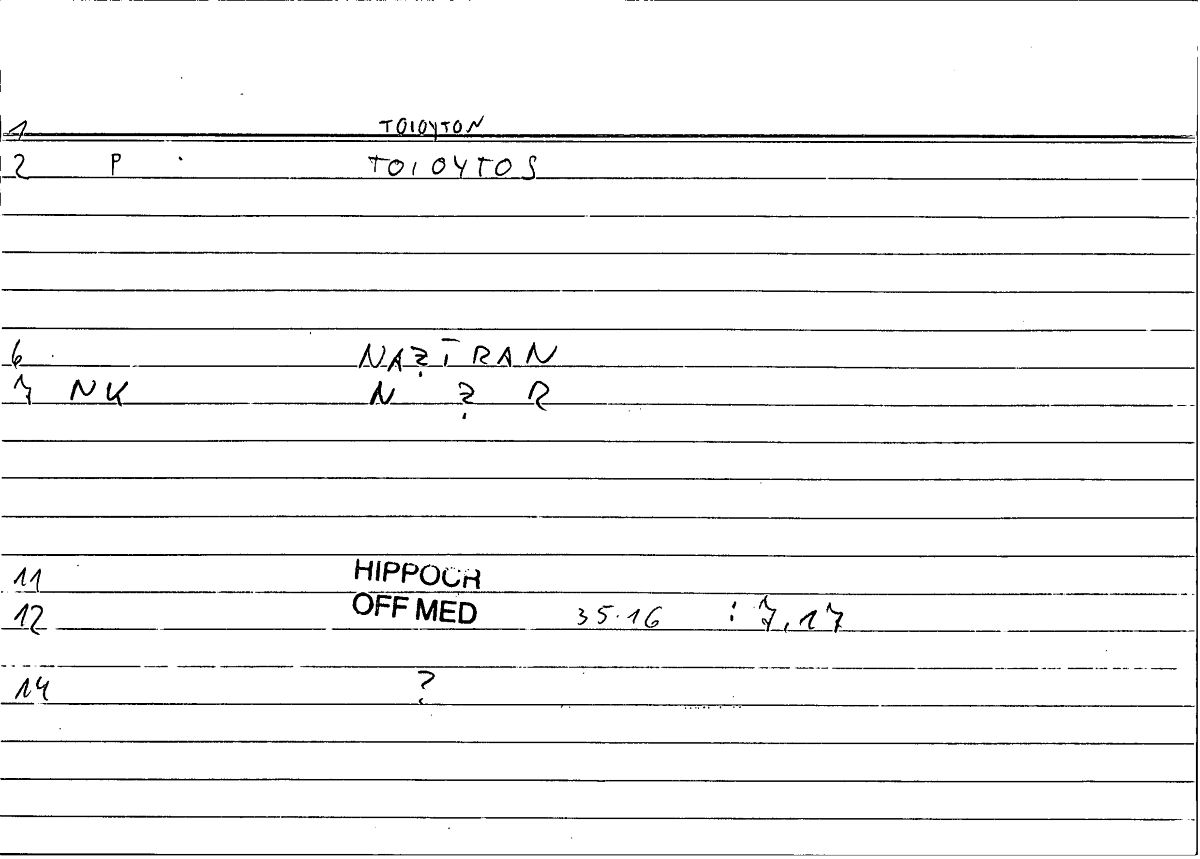 1 TOIOYTON
2 P TOIOYTOS
6 NAẒĪRAN
7 NK N Ẓ R
11 HIPPOCR
12 OFF MED 35.16 : 7,17
14 ?